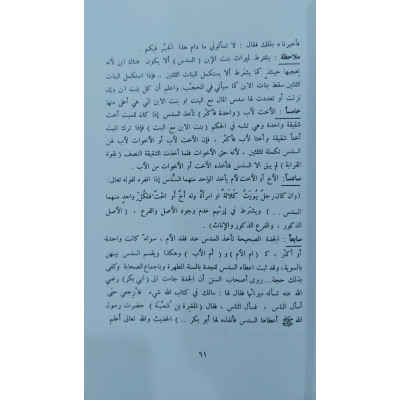 فأخبرناه بذلك فقال : لا تسألوني ما دام هذا الحبر فيكم .
ملاحظة : يشترط لميراث بنت الإبن ( السدس ) ألا يكون هناك ابن لأنه
يحجبها حينئذٍ كما يشترط ألا يستكمل البنات الثلثين . فإذا استكمل البنات
الثلثين سقط بنات الابن كما سيأتي في الحجب. واعلم أن كل بنت ابن وإن
نزلت أو تعددت لها سدس المال مع البنت أو بنت الابن التي هي أعلى منها
خامساً : الأخت لأب ( واحدة فأكثر ) تأخذ السدس إذا كان للميت أخت
شقيقة واحدة وهي تشبه في الحكم ( بنت الابن مع البنت ) فإذا ترك الميت
أختاً شقيقة وأختاً لأب فأكثر ، فإن الأخت لأب أو الأخوات لأب لهن
السدس تكملة للثلثين ، لأنه حق الأخوات فلما أخذت الشقيقة النصف ( بقوة
القرابة ) لم يبق الا السدس فتأخذه الأخت أو الأخوات من الأب .
سادساً : الأخ أو الأخت لأم يأخذ الواحد منهما السدس إذا انفرد لقوله تعالى:
(وان كان رجلٌ يورَثُ كَلاَلَةً او امرأةٌ وله أخٌ أو اختٌ فلكُل واحدٍ منهما
السدس .. ) ويشترط في إرثهم عدم وجود الأصل والفرع ، ( الأصل
الذكور ، والفرع الذكور والإناث) .
سابعاً : الجدة الصحيحة تأخذ السدس عند فقد الأم ، سواء كانت واحدة-
أو أكثر ، كـ ( أم الأم ) و ( أم الأب ) وهكذا ويقسم السدس بينهن
بالسوية، وقد ثبت اعطاء السدس للجدة بالسنة المطهرة وباجماع الصحابة وكفى
بذلك حجة... روى أصحاب السنن أن الجدة جاءت الى (أبي بكر) رضي
الله عنه تسأله ميراثها فقال لها : مالك في كتاب الله شيء فارجعي حتى
أسأل الناس ، فسأل الناس ، فقال (المغيرة بن شعبة ) حضرت رسول
الله ﷺ أعطاها السدس فأنفذه لها أبو بكر .. ) الحديث والله تعالى أعلم
٦١